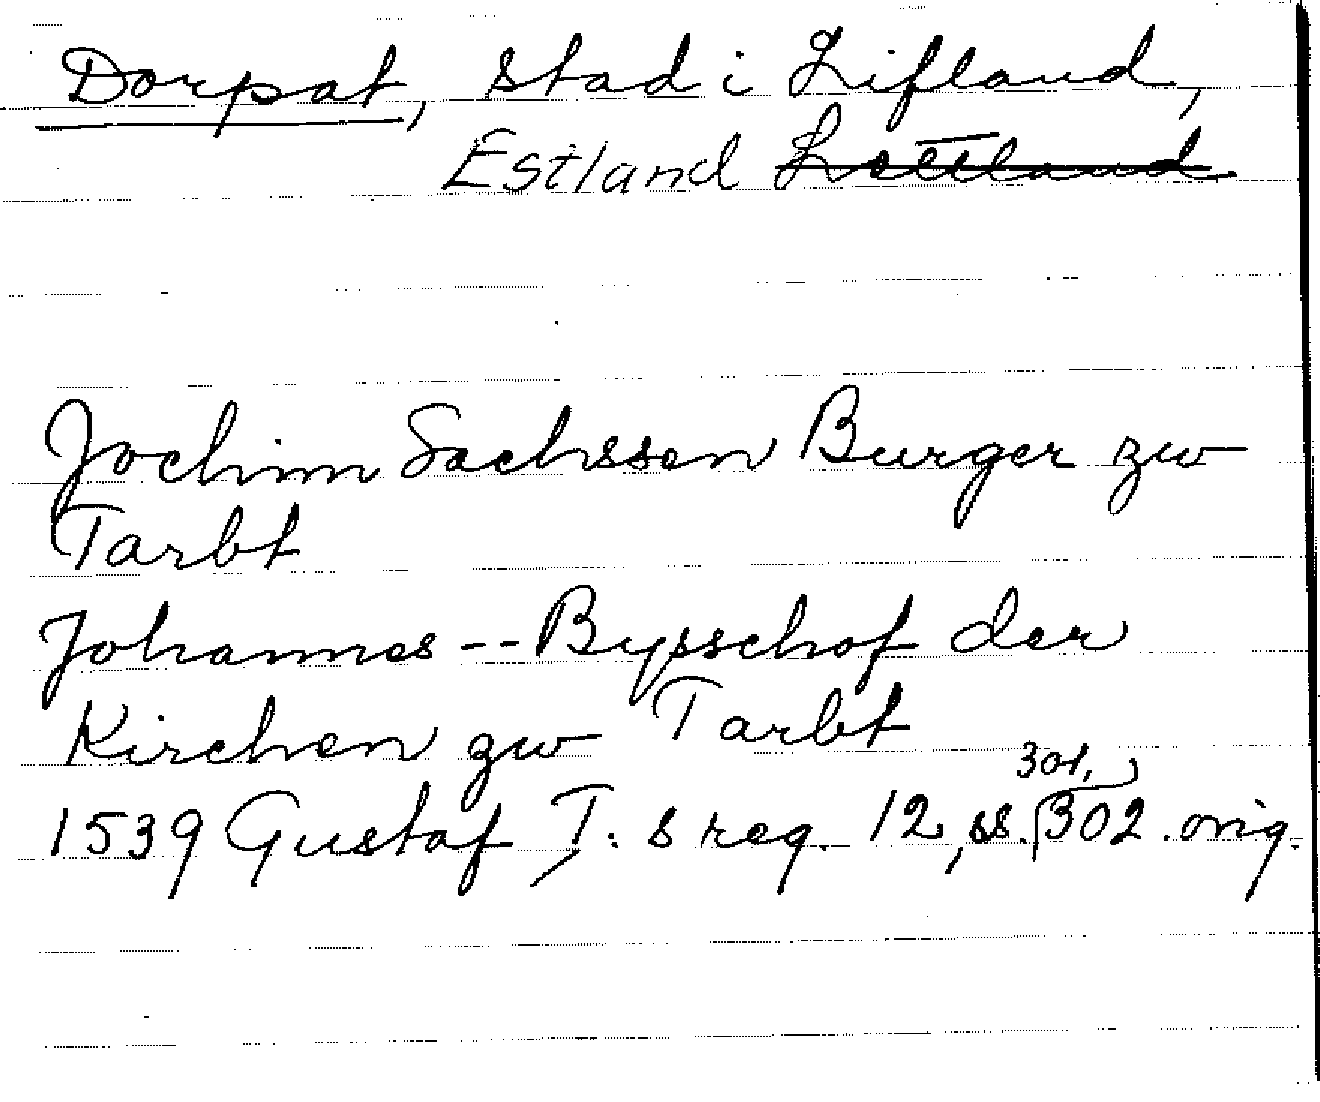 Dorpat, stad i Lifland,
Estland Lettland
Jochim Sachssen Burger zw
Tarbt
Johannes -- Bysschof der
Kirchen zw Tarbt
301,
1539 Gustaf I: s reg. 12, ss. 302. orig.